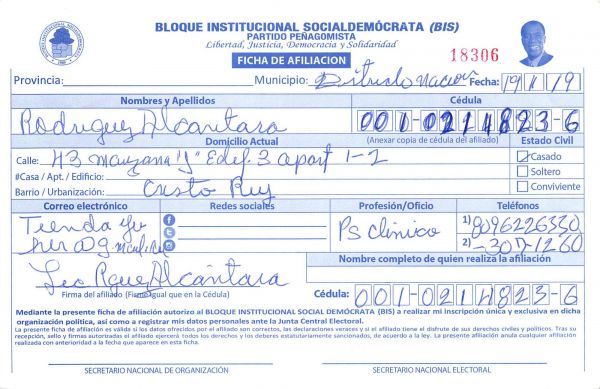 BLOQUE INSTITUCIONAL SOCIALDEMÓCRATA (BIS)
PARTIDO PEÑAGOMISTA
Libertad, Justicia, Democracia y Solidaridad
FICHA DE AFILIACION
18306
Provincia: Municipio: Distrito Nacion Fecha: 19/11/19
Nombres y Apellidos Cédula
Rodriguez Alcantara 001-0214823-6
Domicilio Actual (Anexar copia de cédula del afiliado) Estado Civil
Calle: 43 manzana "J" Edif. 3 apart 1-2 Casado
#Casa / Apt. / Edificio: Soltero
Barrio / Urbanización: Cristo Rey Conviviente
Correo electrónico Redes sociales Profesión/Oficio Teléfonos
Tienda Ps clinico 1) 8096226330
2) -307-1260
Nombre completo de quien realiza la afiliación
Alcantara
Firma del afiliado (Firme igual que en la Cédula) Cédula: 001-0214823-6
Mediante la presente ficha de afiliación autorizo al BLOQUE INSTITUCIONAL SOCIAL DEMÓCRATA (BIS) a realizar mi inscripción única y exclusiva en dicha
organización política, así como a registrar mis datos personales ante la Junta Central Electoral.
La presente ficha de afiliación es válida si los datos ofrecidos por el afiliado son correctos, las declaraciones veraces y si el afiliado tiene el disfrute de sus derechos civiles y políticos. Tras su
recepción, sello y firmas autorizadas el afiliado ejercerá todos los derechos y los deberes estatutariamente sancionados, de acuerdo a la ley. La presente afiliación anula cualquier afiliación
realizada con anterioridad a la fecha que aparece en esta ficha.
SECRETARIO NACIONAL DE ORGANIZACIÓN SECRETARIO NACIONAL ELECTORAL